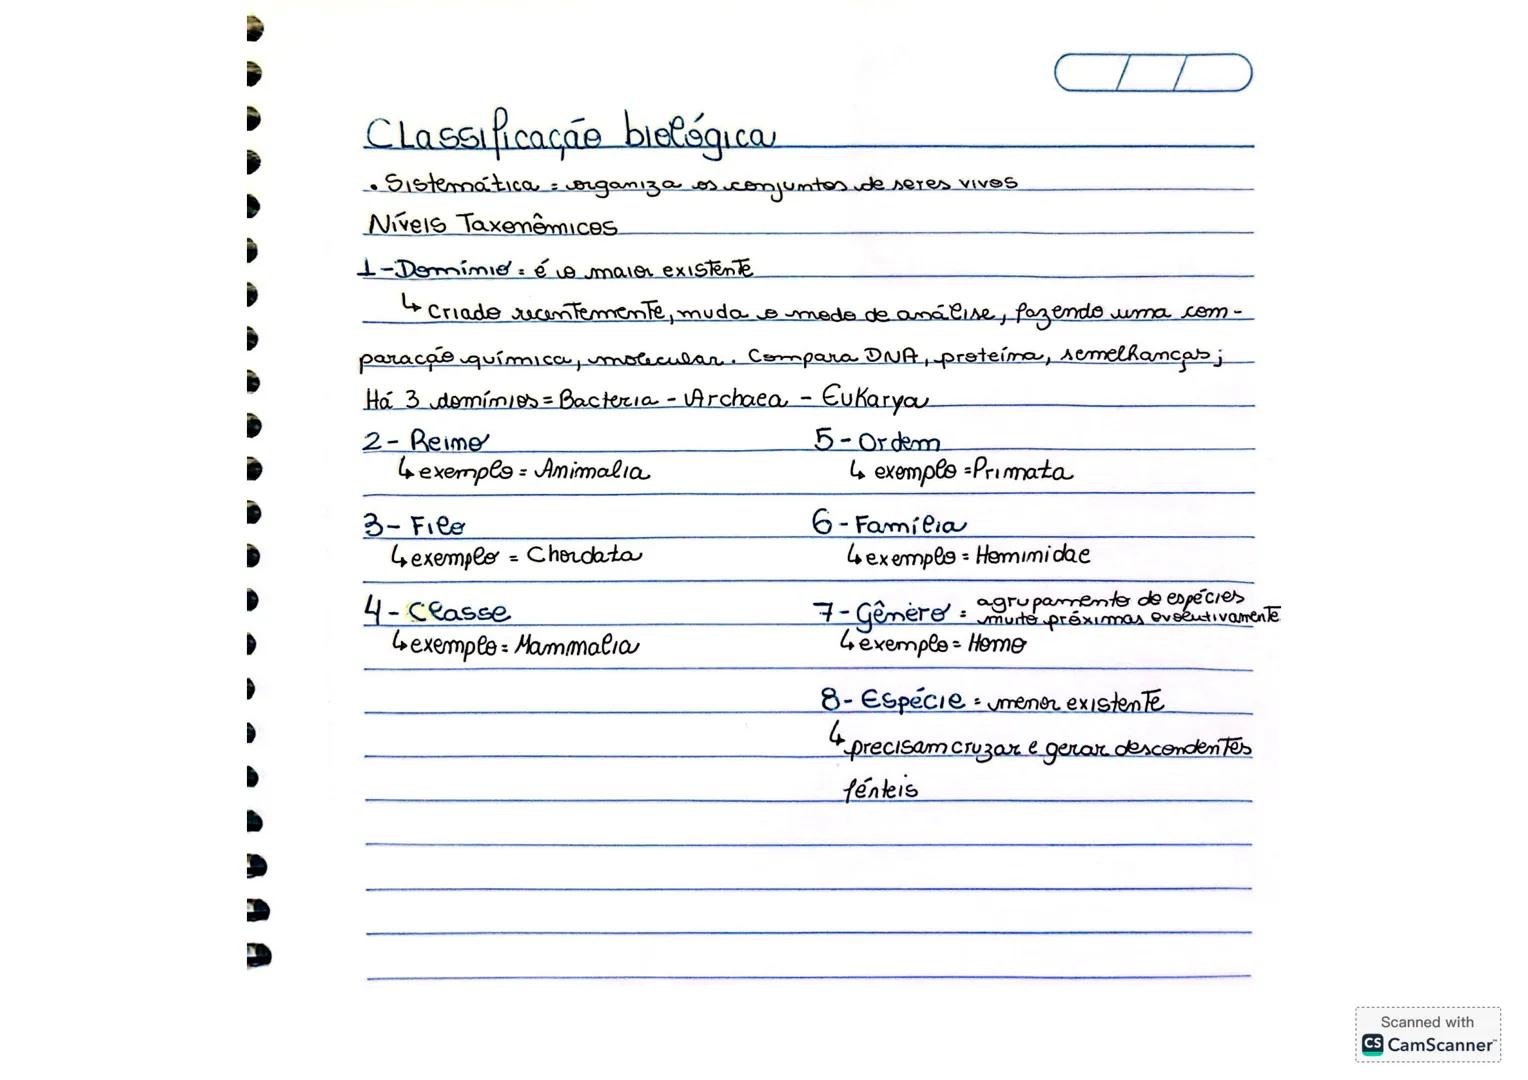 Classificação biológica
• Sistemática = organiza os conjuntos de seres vivos
Níveis Taxonômicos
1-Domínio = é o maior existente
↳ Criado recentemente, muda o modo de análise, fazendo uma com-
paração química, molecular. Compara DNA, proteína, semelhanças;
Há 3 domínios = Bacteria - Archaea - Eukarya
2- Reino
↳ exemplo = Animalia
3- Filo
↳ exemplo = Chordata
4- Classe
↳ exemplo = Mammalia
5- Ordem
↳ exemplo = Primata
6- Família
↳ exemplo = Hominidae
7- Gênero = agrupamento de espécies
muito próximas evolutivamente
↳ exemplo = Homo
8- Espécie = menor existente
↳ precisam cruzar e gerar descendentes
férteis
Scanned with
CS CamScanner